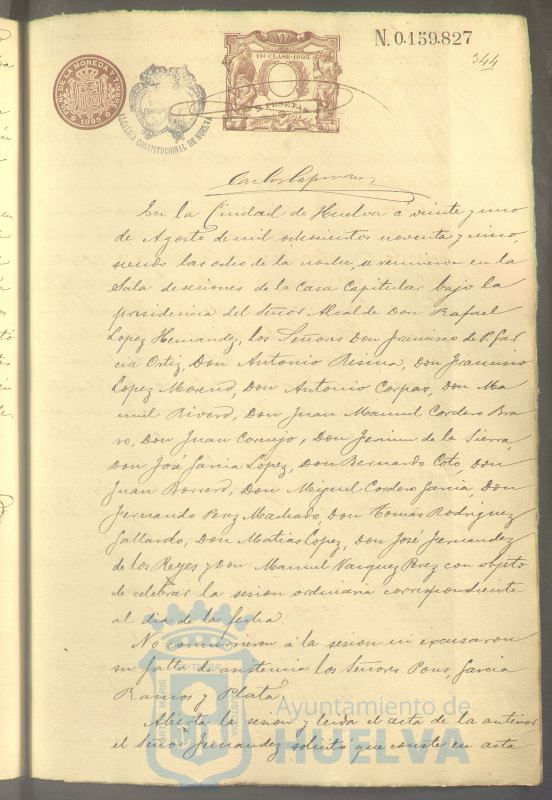 N. 0.159.827
344
11ª CLASE-1895
2 PESETAS
FCA. NAL. DE LA MONEDA Y TIMBRE
1895
ALCALDIA CONSTITUCIONAL DE HUELVA
En la Ciudad de Huelva á veinte y uno
de Agosto de mil ochocientos noventa y cinco,
siendo las ocho de la noche, se reunieron en la
Sala de sesiones de la Casa Capitular bajo la
presidencia del Señor Alcalde Don Rafael
Lopez Hernandez, los Señores Don Francisco de P. Gar
cia Ortiz, Don Antonio Resina, Don Francisco
Lopez Moreno, Don Antonio Corpas, Don Ma
nuel Rivero, Don Juan Manuel Cordero Bra
vo, Don Juan Cornejo, Don de la Sierra,
Don José Garcia Lopez, Don Bernardo Coto, Don
Juan Borrero, Don Miguel Cordero Garcia, Don
Fernando Perez Machado, Don Tomás Rodriguez
Gallardo, Don Matias Lopez, Don José Fernandez
de los Reyes y Don Manuel Vazquez Perez con objeto
de celebrar la sesion ordinaria correspondiente
al dia de la fecha.
No concurrieron á la sesion ni excusaron
su falta de asistencia los Señores Pons, Garcia
Ramos y Plata.
Abierta la sesion y leida el acta de la anterior
el Señor Fernandez solicitó que conste en acta
Ayuntamiento de
HUELVA